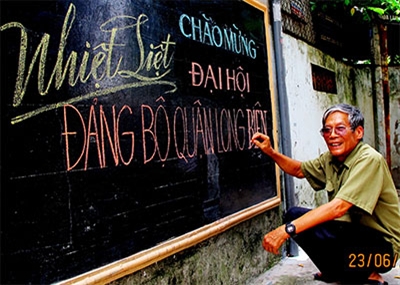 Nhiệt Liệt
CHÀO MỪNG
ĐẠI HỘI
ĐẢNG BỘ QUÂN LONG BIÊN
23/06